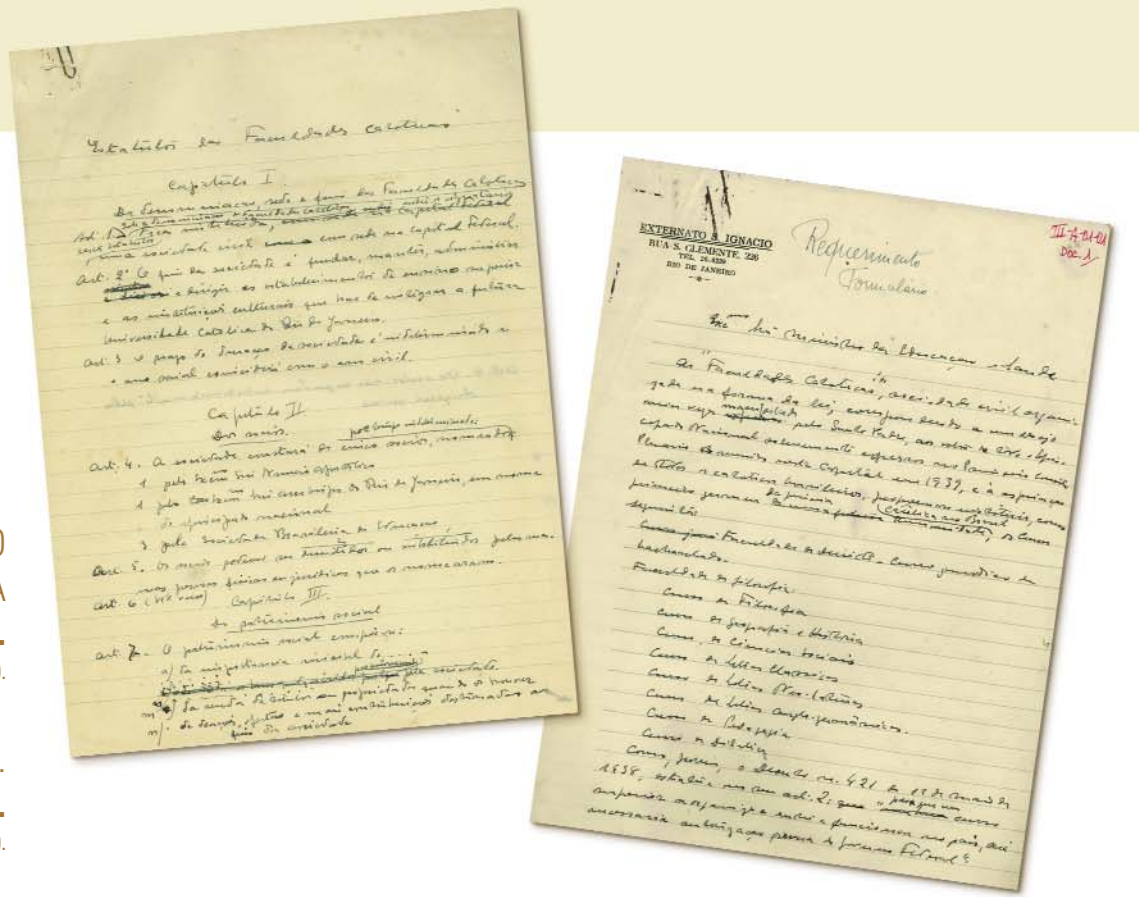 Estatutos das Faculdades Catolicas
Capitulo I.
Da denominação, sede e fins das Faculdades Catolicas
Art. 1º
uma sociedade civil com sede na capital Federal.
Art. 2º O fim da sociedade é fundar, manter, administrar
e dirigir os estabelecimentos de ensino superior
e as instituições culturais que hão de integrar a futura
Universidade Catolica do Rio de Janeiro.
Art. 3 O prazo de duração da sociedade é indeterminado e
o ano social coincidirá com o ano civil.
Capitulo II
Dos socios.
por tempo indeterminado:
Art. 4. A sociedade constará de cinco socios, nomeados
1 pelo Exmo Snr Nuncio Apostolico
1 pelo Exmo Snr Arcebispo do Rio de Janeiro, em nome
do episcopado nacional
3 pela Sociedade Brasileira de Educação,
Art. 5. Os socios podem ser demitidos ou substituidos pelas mes-
mas pessoas fisicas ou juridicas que os nomearam.
Art. 6
Capitulo III.
Do patrimonio social
Art. 7 - O patrimonio social
a) da importancia inicial de .....
pela sociedade.
da renda de titulos ou propriedades quando os houver
de doações, e mais contribuições destinadas aos
fins da sociedade
EXTERNATO S. IGNACIO
RUA S. CLEMENTE, 226
TEL. 26-
RIO DE JANEIRO
Requerimento
Formulário
III-A-01-01
DOC. 1
Exmo Snr Ministro da Educação e Saude
As "Faculdades Catolicas", sociedade civil organi-
zada na forma da lei, correspondendo a um desejo
manifestado pelo Santo Padre, aos votos de todo o Epis-
copado Nacional solenemente expressos no Concilio
Plenario reunido nesta Capital em 1939, e á aspiração
de todos os catolicos brasileiros, instituir, como
primeiro germen da primeira Catolica no Brasil, os cursos
seguintes:
Faculdade de Direito - Curso juridico de
bacharelado.
Faculdade de filosofia:
Curso de Filosofia
Curso de Geografia e Historia
Curso de Ciencias sociais
Curso de Letras Classicas
Curso de Letras Neo-Latinas
Curso de Letras anglo-germânicas.
Curso de Pedagogia
Curso de Didatica
Como, porem, o Decreto n. 421 de 11 de maio de
1938, estabelece no seu art. 2: que "para que um curso
superior se organize e entre a funcionar no país, é
necessaria autorização previa do Governo Federal"